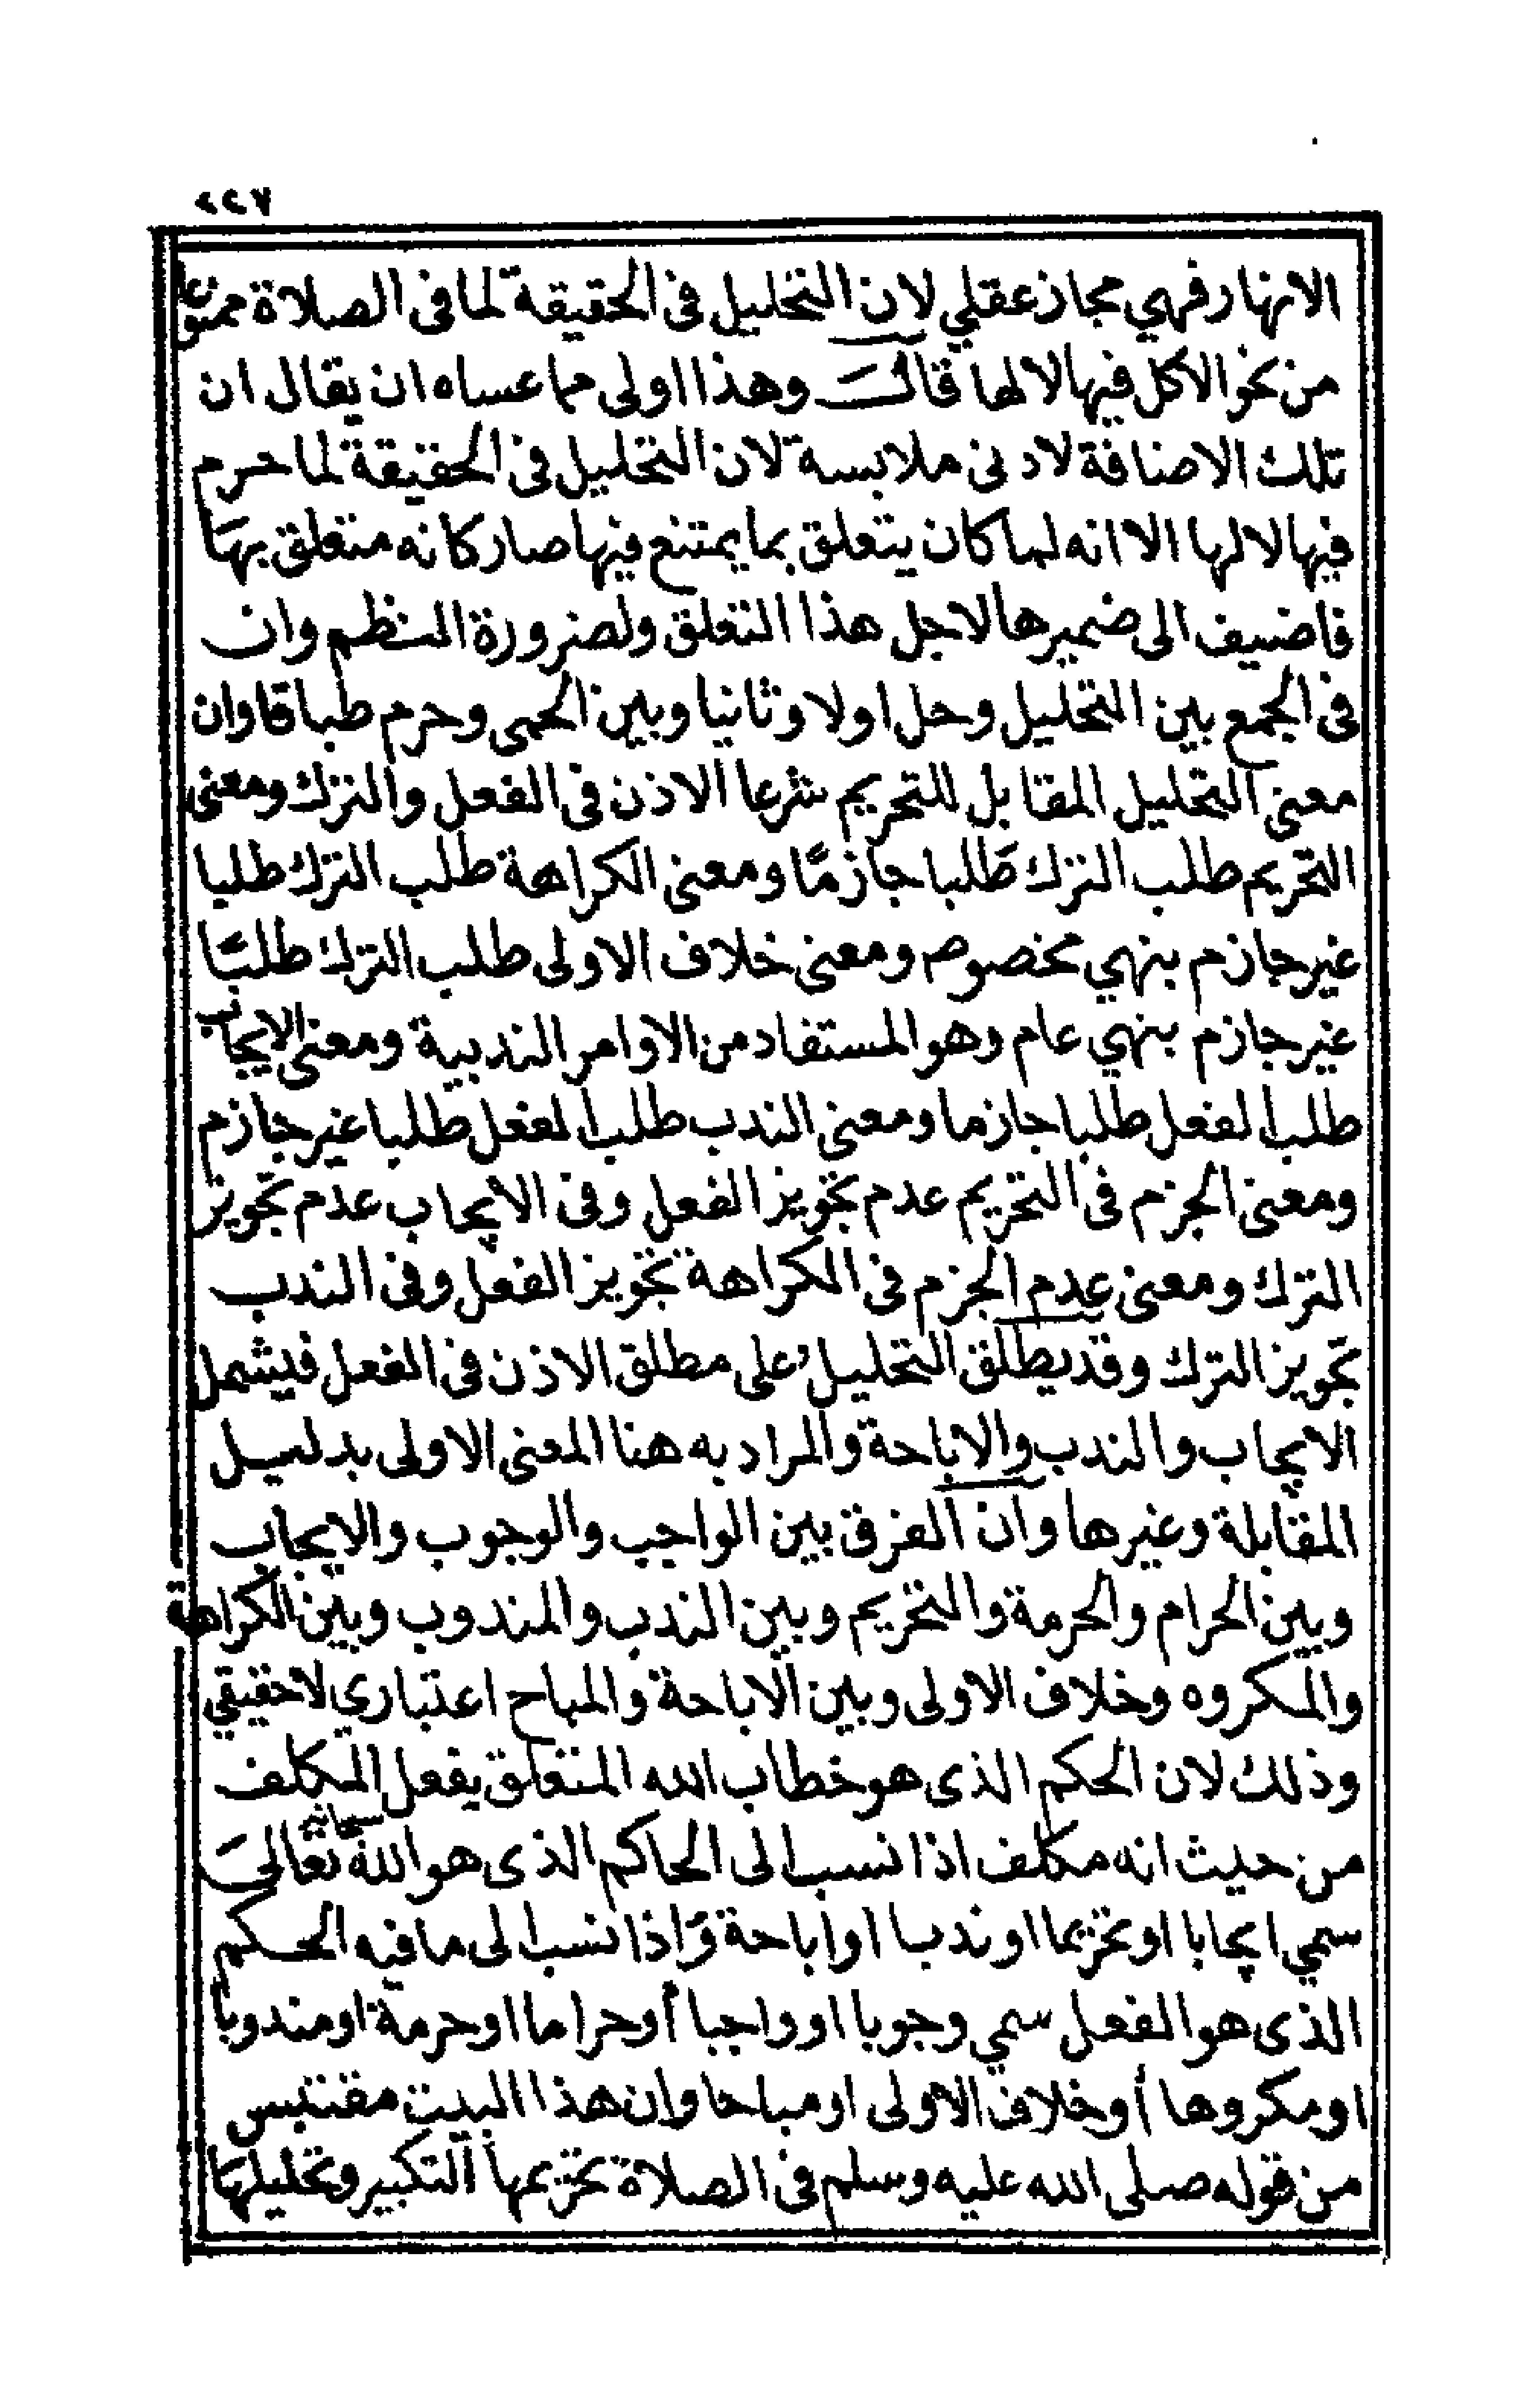 ٢٤٧
الانهار فهي مجاز عقلي لان التحليل فى الحقيقة لما فى الصلاة ممنوعا
من نحو الاكل فيها لا لها قال وهذا اولى مما عساه ان يقال ان
تلك الاضافة لادنى ملابسة لان التحليل فى الحقيقة لما حرم
فيها لا لها الا انه لما كان يتعلق بما يمتنع فيها صار كانه متعلق بها
فاضيف الى ضميرها لاجل هذا التعلق ولضرورة النظم وان
فى الجمع بين التحليل وحل اولا وثانيا وبين الحمى وحرم طباقا وان
معنى التحليل المقابل للتحريم شرعا الاذن فى الفعل والترك ومعنى
التحريم طلب الترك طلبا جازمًا ومعنى الكراهة طلب الترك طلبا
غير جازم بنهي مخصوص ومعنى خلاف الاولى طلب الترك طلبًا
غير جازم بنهي عام وهو المستفاد من الاوامر الندبية ومعنى الايجاب
طلب الفعل طلبا جازما ومعنى الندب طلب الفعل طلبا غير جازم
ومعنى الجزم فى التحريم عدم تجويز الفعل وفى الايجاب عدم تجويز
الترك ومعنى عدم الجزم فى الكراهة تجويز الفعل وفى الندب
تجويز الترك وقد يطلق التحليل على مطلق الاذن فى الفعل فيشمل
الايجاب والندب والاباحة والمراد به هنا المعنى الاولى بدليل
المقابلة وغيرها وان الفرق بين الواجب والوجوب والايجاب
وبين الحرام والحرمة والتحريم وبين الندب والمندوب وبين الكراهة
والمكروه وخلاف الاولى وبين الاباحة والمباح اعتباري لا حقيقي
وذلك لان الحكم الذى هو خطاب الله المتعلق بفعل المكلف
من حيث انه مكلف اذا نسب الى الحاكم الذى هو الله سبحانه تعالى
سمي ايجابا او تحريما او ندبا او اباحة واذا نسب الى ما فيه الحكم
الذى هو الفعل سمي وجوبا او واجبا أو حراما او حرمة او مندوبا
او مكروها أو خلاف الاولى او مباحا وان هذا البيت مقتبس
من قوله صلى الله عليه وسلم فى الصلاة تحريمها التكبير وتحليلها